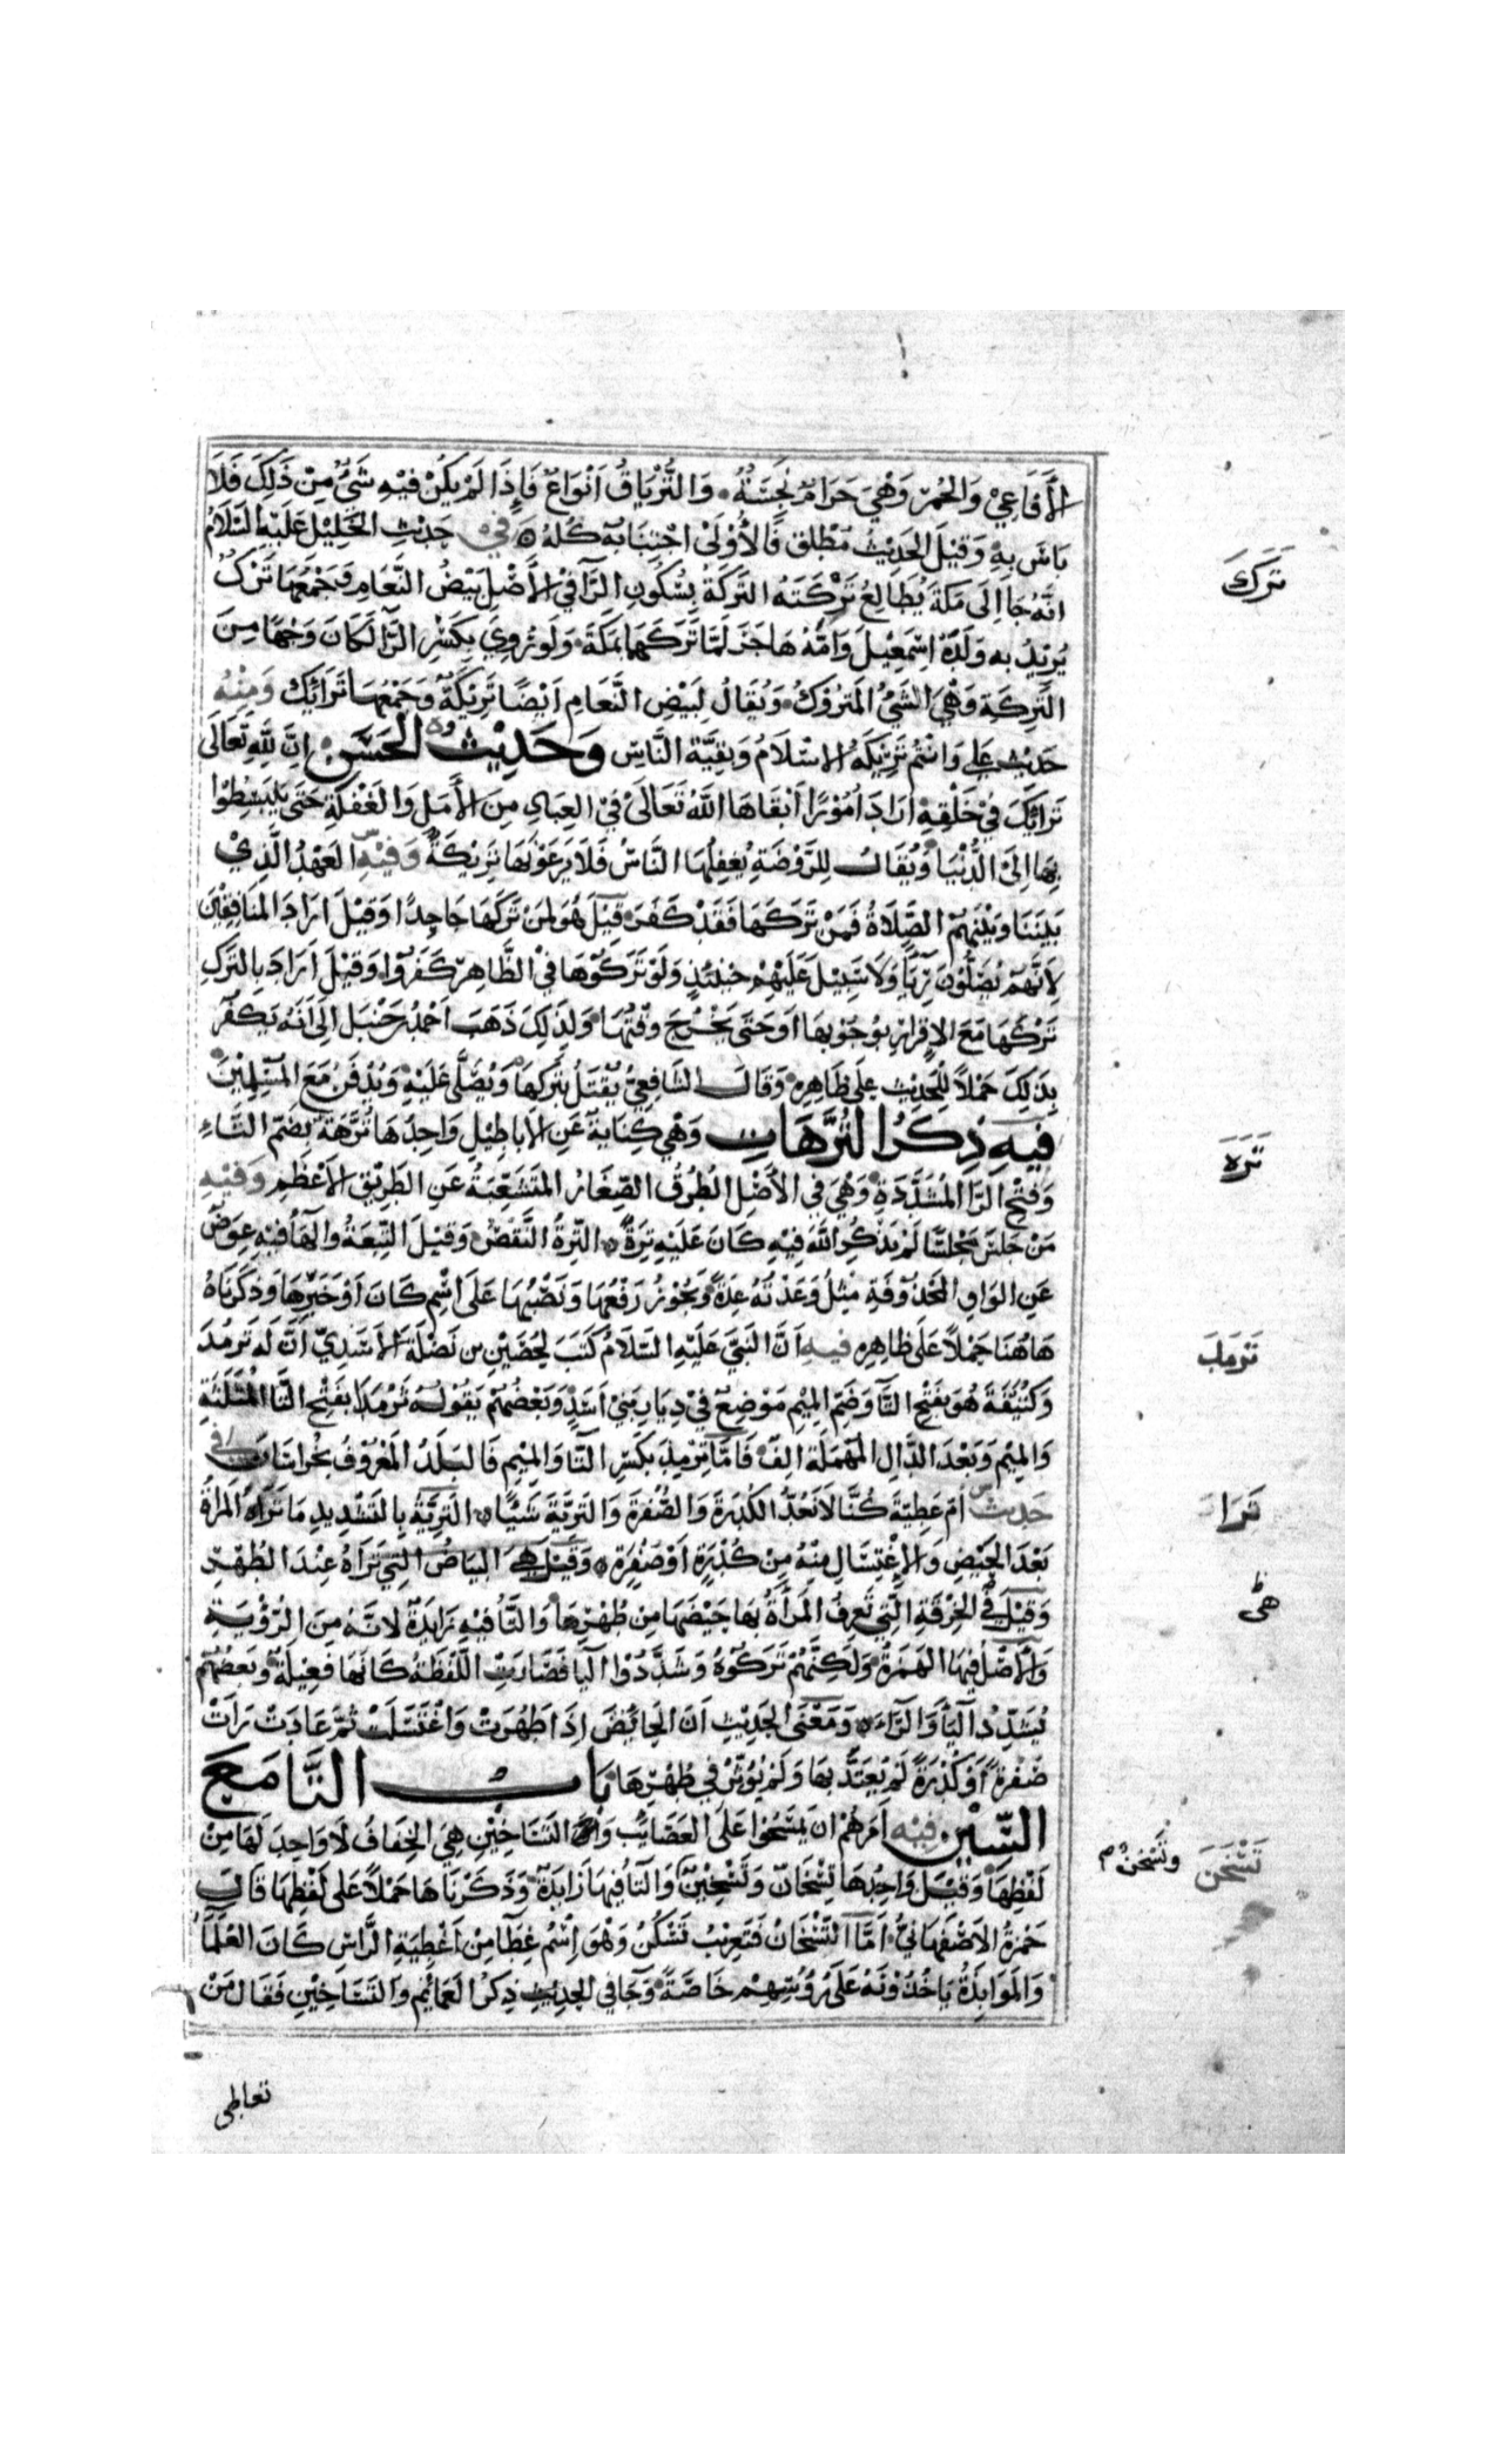 الأَفَاعِيْ وَالخَمْرِ وَهْيَ حَرَامٌ نَجِسَةٌ وَالتُّرْيَاقُ اَنْوَاعٌ فَاِذَا لَمْ يَكُنْ فِيْهِ شَيْءٌ مِنْ ذَلِكَ فَلَا
بَاسَ بِهِ وَقِيْلَ الحَدِيْثُ مُطْلَق فَالأَوْلَى اجْتِنَابُه كُلُّهُ ه فِي حَدِيْثِ الخَلِيْلِ عَلَيْهِ السَّلَامُ
تَرَكَ
اَنَّهُ جَا اِلَى مَكَّةَ يُطَالِعُ تَرْكَتَهُ التَّرْكَةُ بِسُكُونِ الرَّا فِي الأَصْلِ بَيْضُ النَّعَامِ وَجَمْعُهَا تَرْكٌ
يُرِيْدُ بِه وَلَدَهُ اِسْمَعِيْلَ وَاُمَّهُ هَاجَرَ لَمَّا تَرَكَهَا بِمَكَّةَ وَلَوْ رُوِيَ بِكَسْرِ الرَّا لَكَانَ وَجْهًا مِنَ
التَّرِكَةِ وَهْيَ الشَّيْءُ المَتْرُوْكُ وَيُقَالُ لِبَيْضِ النَّعَامِ اَيْضًا تَرِيْكَةٌ وَجَمْعُهَا تَرَائِكُ وَمِنْهُ
حَدِيْثُ عَلِي وَاَنْتُمْ تَرِيْكَةُ الاسْلَامِ وَبَقِيَّةُ النَّاسِ وَحَدِيْثُ الحَسَنِ اِنَّ لِلّٰهِ تَعَالَى
تَرَائِكَ فِيْ خَلْقِهِ اَرَادَ اُمُوْرًا اَبْقَاهَا اللّٰهُ تَعَالَى فِي العِبَادِ مِنَ الأَمَلِ وَالغَفْلَةِ حَتَّى يَنْبَسِطُوْا
بِهَا اِلَى الدُّنْيَا وَيُقَالُ لِلرَّوْضَةِ يُغْفِلُهَا النَّاسُ فَلَا يَرْعَوْنَهَا تَرِيْكَةٌ وَفِيْهِ العَهْدُ الَّذِيْ
بَيْنَنَا وَبَيْنَهُمُ الصَّلَاةُ فَمَنْ تَرَكَهَا فَقَدْ كَفَرَ قِيْلَ هُوَ لِمَنْ تَرَكَهَا جَاحِدًا وَقِيْلَ اَرَادَ المُنَافِقِيْنَ
لِاَنَّهُمْ يُصَلُّوْنَ رِيَاءً وَلَا سَبِيْلَ عَلَيْهِمْ حِيْنَئِذٍ وَلَوْ تَرَكُوْهَا فِي الظَّاهِرِ كَفَرُوْا وَقِيْلَ اَرَادَ بِالتَّرْكِ
تَرْكَهَا مَعَ الاِقْرَارِ بِوُجُوْبِهَا اَوْ حَتَّى يَخْرُجَ وَقْتُهَا وَلِذَلِكَ ذَهَبَ اَحْمَدُ بْنُ حَنْبَل اِلَى اَنَّهُ يَكْفُرُ
بِذَلِكَ حَمْلاً لِلْحَدِيْثِ عَلَى ظَاهِرِهِ وَقَالَ الشَّافِعِيُّ يُقْتَلُ بِتَرْكِهَا وَيُصَلَّى عَلَيْهِ وَيُدْفَنُ مَعَ المُسْلِمِيْنَ
تَرَهَ
فِيْهِ ذِكْرُ التُّرَّهَاتِ وَهْيَ كِنَايَةٌ عَنِ الاَبَاطِيْلِ وَاحِدُهَا تُرَّهَةٌ بِضَمِّ التَّاءِ
وَفَتْحِ الرَّا المُشَدَّدَةِ وَهْيَ فِي الأَصْلِ الطُّرُقُ الصِّغَارُ المُتَشَعِّبَةُ عَنِ الطَّرِيْقِ الاَعْظَمِ وَفِيْهِ
مَنْ جَلَسَ مَجْلِسًا لَمْ يَذْكُرِ اللّٰهَ فِيْهِ كَانَ عَلَيْهِ تِرَةٌ ه التِّرَةُ النَّقْصُ وَقِيْلَ التَّبِعَةُ وَالهَا فِيْهِ عِوَضٌ
عَنِ الوَاوِ المَحْذُوْفَةِ مِثْلُ وَعَدْتُهُ عِدَةً وَيَجُوْزُ رَفْعُهَا وَنَصْبُهَا عَلَى اسْمِ كَانَ اَوْ خَبَرِهَا وَذَكَرْنَاهُ
تَرْمَدَ
هَاهُنَا حَمْلاً عَلَى ظَاهِرِهِ فِيهِ اَنَّ النَّبِيَّ عَلَيْهِ السَّلَامُ كَتَبَ لِحُصَيْنِ بن نَضْلَةَ الاَسَدِيِّ اَنَّ لَهُ تَرْمُدَ
وَكُتَيْفَةَ هُوَ بِفَتْحِ التَّا وَضَمِّ المِيْمِ مَوْضِعٌ فِيْ دِيَارِ بَنِيْ اَسَدٍ وَبَعْضُهُمْ يَقُوْلُهُ ثَرْمَدَا بِفَتْحِ الثَّا المُثَلَّثَةِ
وَالمِيْمِ وَبَعْدَ الدَّالِ المُهْمَلَةِ اَلِفٌ فَاَمَّا تِرْمِذ بِكَسْرِ التَّا وَالمِيْمِ فَالبَلَدُ المَعْرُوْفُ بِخُرَاسَانَ فِي
تَرَا
حَدِيْثِ اُمِّ عَطِيَّةَ كُنَّا لَا نَعُدُّ الكُدْرَةَ وَالصُّفْرَةَ وَالتَّرِيَّةَ شَيْئًا ه التَّرِيَّةُ بِالتَّشْدِيدِ مَا تَرَاهُ المَرْاَةُ
بَعْدَ الحَيْضِ وَالاِغْتِسَالِ مِنْهُ مِنْ كُدْرَةٍ اَوْ صُفْرَةٍ ه وَقِيْلَ هِيَ البَيَاضُ الَّتِيْ تَرَاهُ عِنْدَ الطُّهْرِ
هى
وَقِيْلَ فِي الخِرْقَةِ الَّتِي تَعْرِفُ المَرْأَةُ بِهَا حَيْضَهَا مِنْ طُهْرِهَا وَالتَّاُ فِيْهِ زَايِدَةٌ لاَنَّهُ مِنَ الرُّؤْيَةِ
وَالأَصْلُ فِيْهَا الهَمْزَةُ وَلَكِنَّهُمْ تَرَكُوْهُ وَشَدَّدُوْا اليَا فَصَارَتِ اللَّفْظَةُ كَاَنَّهَا فَعِيْلَةٌ وَبَعْضُهُمْ
يُشَدِّدُ اليَاَ وَالرَّاءَ ه وَمَعْنَى الحَدِيْثِ اَنَّ الحَائِضَ اِذَا طَهُرَتْ وَاغْتَسَلَتْ ثُمَّ عَادَتْ رَاَتْ
صُفْرَةً اَوْ كُدْرَةً لَمْ يُعْتَدَّ بِهَا وَلَمْ يُؤَثِّرْ فِي طُهْرِهَا بَابُ التَّا مَعَ
تَسْخَن وتَسْخن م
السِّيْنِ فِيْهِ اَمَرَهُمْ اَنْ يَمْسَحُوْا عَلَى العَصَائِبِ وَالتَّسَاخِيْنِ هِيَ الخِفَافُ لَا وَاحِدَ لَهَا مِنْ
لَفْظِهَا وَقِيْلَ وَاحِدُهَا تَسْخَانٌ وَتَسْخِيْنٌ وَالتَّاُ فِيْهَا زَايِدَةٌ وَذَكَرْنَاهَا حَمْلاً عَلَى لَفْظِهَا قَالَ
حَمْزَةُ الاَصْفَهَانِيُّ اَمَّا التَّسْخَانُ فَتَعْرِيْبُ تَشْكُنْ وَهْوَ اِسْمُ غِطَا مِنْ اَغْطِيَةِ الرَّاسِ كَانَ العُلَمَاُ
وَالمَوَابِذَةُ يَاخُذُوْنَهُ عَلَى رُؤُسِهِمْ خَاصَّةً وَجَا فِي الحَدِيْثِ ذِكْرُ العَمَائِمِ وَالتَّسَاخِيْنِ فَقَالَ مَنْ
تعاطى